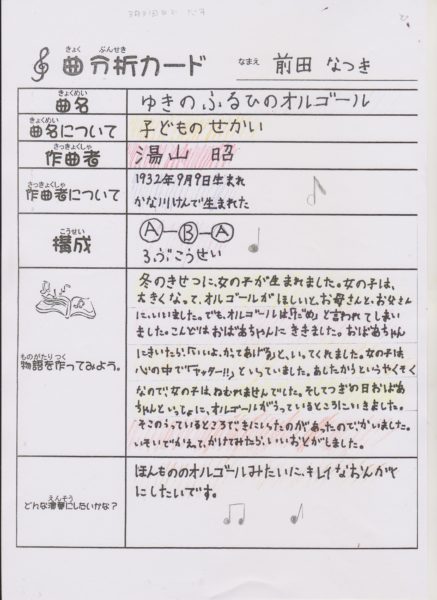 きょく ぶんせき
曲分析カード
なまえ 前田 なつき
きょくめい
曲名
ゆきのふるひのオルゴール
きょくめい
曲名について
子どものせかい
さっきょくしゃ
作曲者
湯山 昭
さっきょくしゃ
作曲者について
1932年9月9日生まれ
かな川けんで生まれた
こうせい
構成
A-B-A
3ぶこうせい
ものがたり つく
物語を作ってみよう。
冬のきせつに、女の子が生まれました。女の子は、
大きくなって、オルゴールがほしいと、お母さんと、お父さん
に、いいました。でも、オルゴールは「だめ」と言われてしまい
ました。こんどはおばあちゃんにききました。おばあちゃん
にきいたら、「いいよ、かってあげる」と、いってくれました。女の子は
心の中で「ヤッター!!」といっていました。あしたからというやくそく
なので、女の子はねむれませんでした。そしてつぎの日おばあ
ちゃんといっしょに、オルゴールがうっているところにいきました。
そこのうっているところで、きにいったのがあったので、かいました。
いそいでかえって、かけてみたら、いいおとがしました。
えんそう
どんな演奏にしたいかな?
ほんもののオルゴールみたいに、キレイなおんがく
にしたいです。